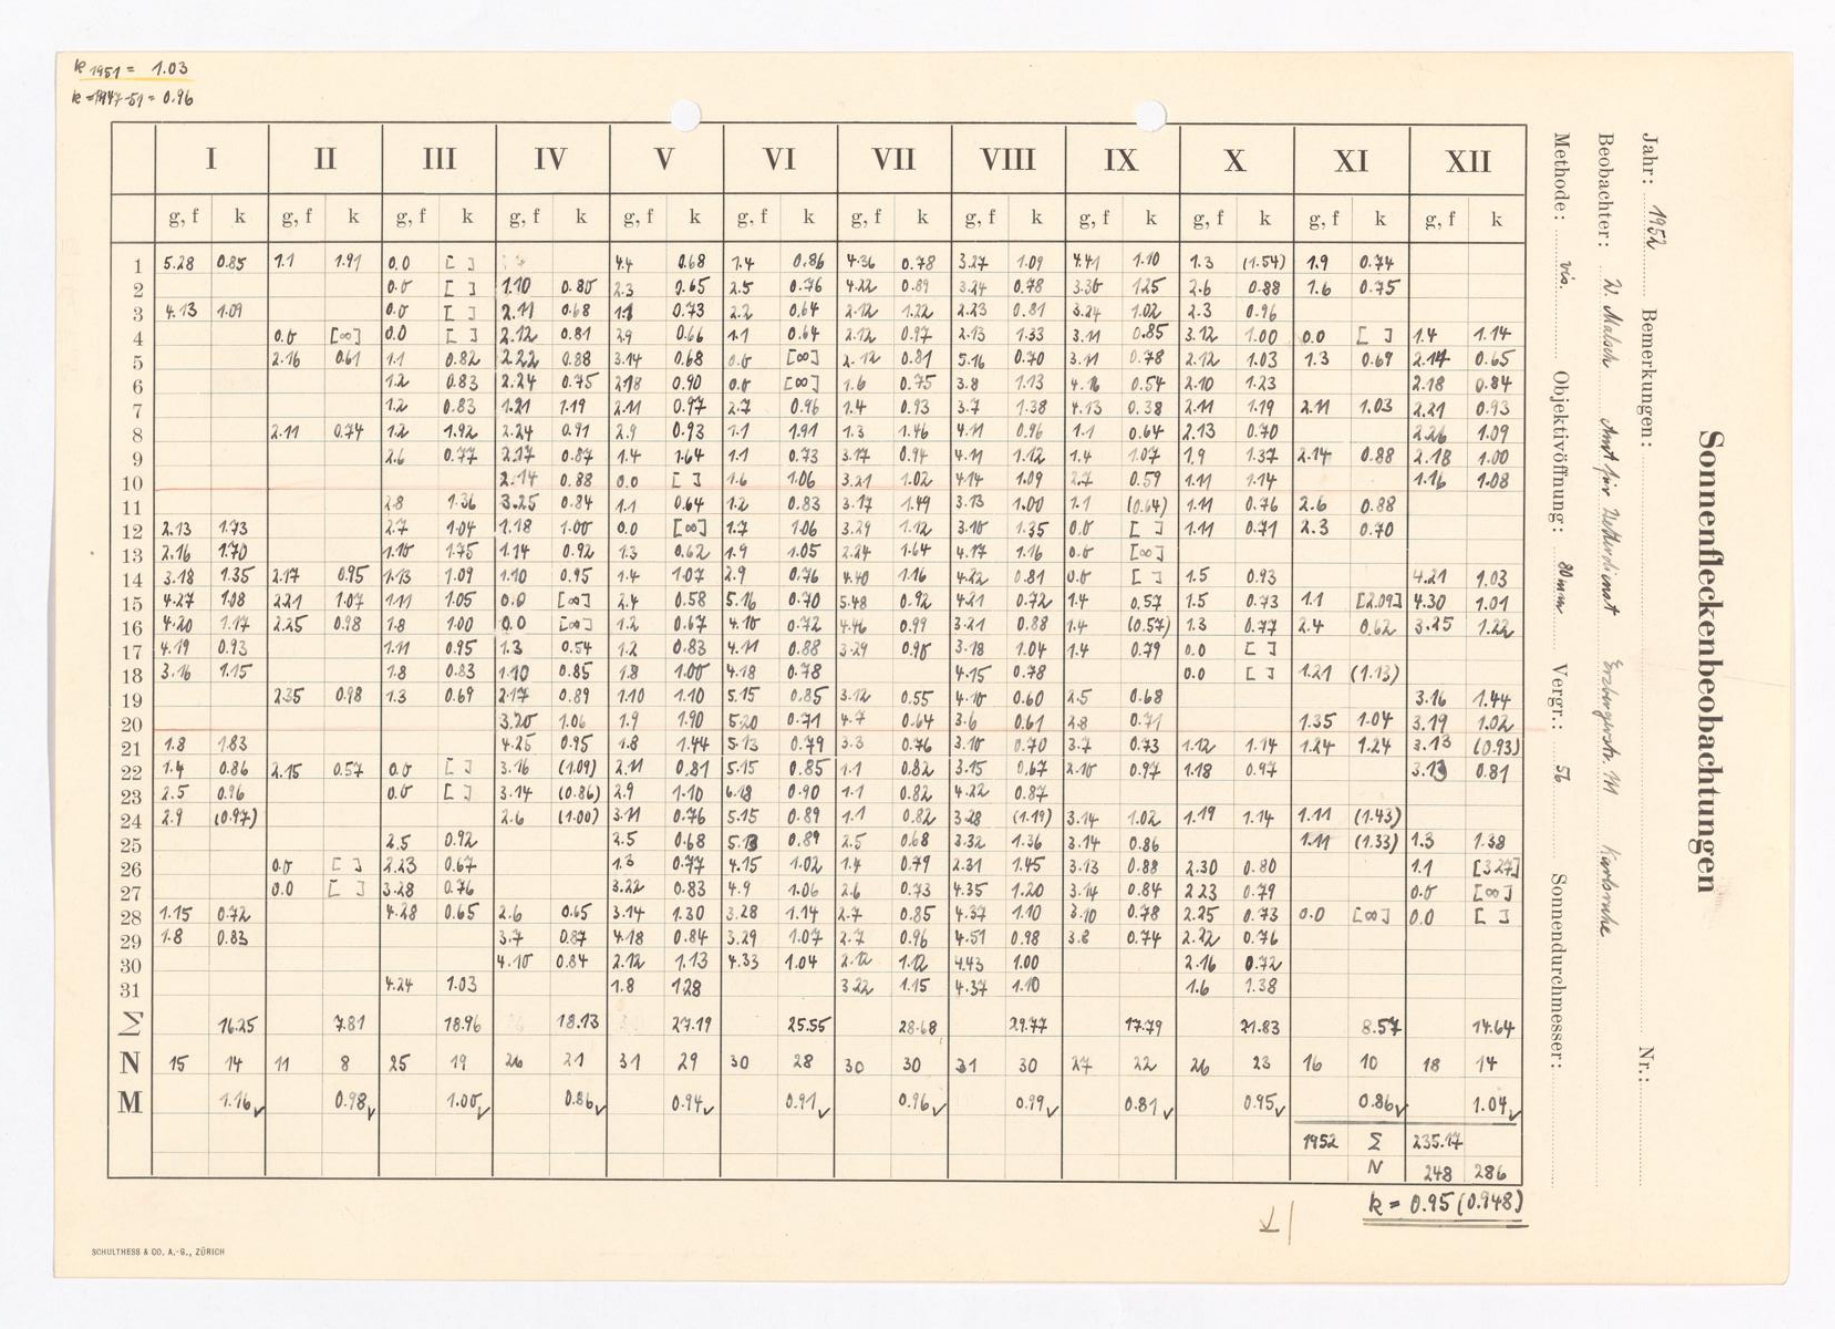 k 1951 = 1.03
k = 1947-51 = 0.96
I II III IV V VI VII VIII IX X XI XII
g, f k g, f k g, f k g, f k g, f k g, f k g, f k g, f k g, f k g, f k g, f k g, f k
1 5.28 0.85 1.1 1.91 0.0 [ ] 4.4 0.68 1.4 0.86 4.36 0.78 3.27 1.09 4.41 1.10 1.3 (1.54) 1.9 0.74
2 0.0 [ ] 1.10 0.80 2.3 0.65 2.5 0.76 4.22 0.89 3.24 0.78 3.30 1.25 2.6 0.88 1.6 0.75
3 4.13 1.09 0.0 [ ] 2.11 0.68 1.1 0.73 2.2 0.64 2.12 1.22 2.23 0.81 3.24 1.02 2.3 0.96
4 0.0 [∞] 0.0 [ ] 2.12 0.81 2.9 0.66 1.1 0.64 2.12 0.97 2.13 1.33 3.11 0.85 3.12 1.00 0.0 [ ] 1.4 1.14
5 2.16 0.61 1.1 0.82 2.22 0.88 3.14 0.68 0.0 [∞] 2.12 0.81 5.16 0.70 3.11 0.78 2.12 1.03 1.3 0.69 2.14 0.65
6 1.2 0.83 2.24 0.75 2.18 0.90 0.0 [∞] 1.6 0.75 3.8 1.13 4.16 0.54 2.10 1.23 2.18 0.84
7 1.2 0.83 1.21 1.19 2.11 0.97 2.7 0.96 1.4 0.93 3.7 1.38 4.13 0.38 2.11 1.19 2.11 1.03 2.21 0.93
8 2.11 0.74 1.2 1.92 2.24 0.91 2.9 0.93 1.1 1.91 1.3 1.46 4.11 0.96 1.1 0.64 2.13 0.70 2.26 1.09
9 2.6 0.77 2.17 0.87 1.4 1.64 1.1 0.73 3.17 0.94 4.11 1.12 1.4 1.07 1.9 1.37 2.14 0.88 2.18 1.00
10 2.14 0.88 0.0 [ ] 1.6 1.06 3.21 1.02 4.14 1.09 2.7 0.59 1.11 1.14 1.16 1.08
11 2.8 1.36 3.25 0.84 1.1 0.64 1.2 0.83 3.17 1.49 3.13 1.00 1.1 (0.64) 1.11 0.76 2.6 0.88
12 2.13 1.73 2.7 1.04 1.18 1.00 0.0 [∞] 1.7 1.06 3.29 1.12 3.10 1.35 0.0 [ ] 1.11 0.71 2.3 0.70
13 2.16 1.70 1.10 1.75 1.14 0.92 1.3 0.62 1.9 1.05 2.24 1.64 4.17 1.16 0.0 [∞]
14 3.18 1.35 2.17 0.95 1.13 1.09 1.10 0.95 1.4 1.07 2.9 0.76 4.40 1.16 4.22 0.81 0.0 [ ] 1.5 0.93 4.21 1.03
15 4.27 1.08 2.21 1.07 1.11 1.05 0.0 [∞] 2.4 0.58 5.16 0.70 5.48 0.92 4.21 0.72 1.4 0.57 1.5 0.73 1.1 [2.09] 4.30 1.01
16 4.20 1.17 2.25 0.98 1.8 1.00 0.0 [∞] 1.2 0.67 4.10 0.72 4.46 0.99 3.21 0.88 1.4 (0.57) 1.3 0.77 2.4 0.62 3.25 1.22
17 4.19 0.93 1.11 0.95 1.3 0.54 1.2 0.83 4.11 0.88 3.29 0.90 3.18 1.04 1.4 0.79 0.0 [ ]
18 3.16 1.15 1.8 0.83 1.10 0.85 1.8 1.00 4.18 0.78 4.15 0.78 0.0 [ ] 1.21 (1.13)
19 2.35 0.98 1.3 0.69 2.17 0.89 1.10 1.10 5.15 0.85 3.12 0.55 4.10 0.60 2.5 0.68 3.16 1.44
20 3.20 1.06 1.9 1.90 5.20 0.71 4.7 0.64 3.6 0.61 2.8 0.71 1.35 1.04 3.19 1.02
21 1.8 1.83 4.25 0.95 1.8 1.44 5.13 0.79 3.3 0.76 3.10 0.70 3.7 0.73 1.12 1.14 1.24 1.24 3.13 (0.93)
22 1.4 0.86 2.15 0.57 0.0 [ ] 3.16 (1.09) 2.11 0.81 5.15 0.85 1.1 0.82 3.15 0.67 2.10 0.97 1.18 0.97 3.13 0.81
23 2.5 0.96 0.0 [ ] 3.14 (0.86) 2.9 1.10 6.18 0.90 1.1 0.82 4.22 0.87
24 2.9 (0.97) 2.6 (1.00) 3.11 0.76 5.15 0.89 1.1 0.82 3.28 (1.19) 3.14 1.02 1.19 1.14 1.11 (1.43)
25 2.5 0.92 2.5 0.68 5.13 0.89 2.5 0.68 2.32 1.36 3.14 0.86 1.11 (1.33) 1.3 1.38
26 0.0 [ ] 2.23 0.67 1.3 0.77 4.15 1.02 1.4 0.79 2.31 1.45 3.13 0.88 2.30 0.80 1.1 [3.27]
27 0.0 [ ] 3.28 0.76 3.22 0.83 4.9 1.06 2.6 0.73 4.35 1.20 3.14 0.84 2.23 0.79 0.0 [∞]
28 1.15 0.72 4.28 0.65 2.6 0.65 3.14 1.30 3.28 1.14 2.7 0.85 4.37 1.10 3.10 0.78 2.25 0.73 0.0 [∞] 0.0 [ ]
29 1.8 0.83 3.7 0.87 4.18 0.84 3.29 1.07 2.7 0.96 4.51 0.98 3.8 0.74 2.22 0.76
30 4.10 0.84 2.12 1.13 4.33 1.04 2.12 1.12 4.43 1.00 2.16 0.72
31 4.24 1.03 1.8 1.28 3.22 1.15 4.37 1.10 1.6 1.38
Σ 16.25 7.81 18.96 18.13 27.19 25.55 28.68 29.77 17.79 21.83 8.57 14.64
N 15 14 11 8 25 19 26 21 31 29 30 28 30 30 31 30 27 22 26 23 16 10 18 14
M 1.16 0.98 1.00 0.86 0.94 0.91 0.96 0.99 0.81 0.95 0.86 1.04
1952 Σ 235.17
N 248 286
k = 0.95 (0.948)
SCHULTHESS & CO. A.-G., ZÜRICH
Sonnenfleckenbeobachtungen
Jahr: 1952 Bemerkungen: Nr.:
Beobachter: W. Malsch Amt für Wetterdienst Erzbergerstr. 111 Karlsruhe
Methode: vis. Objektivöffnung: 80 mm Vergr.: 56 Sonnendurchmesser: